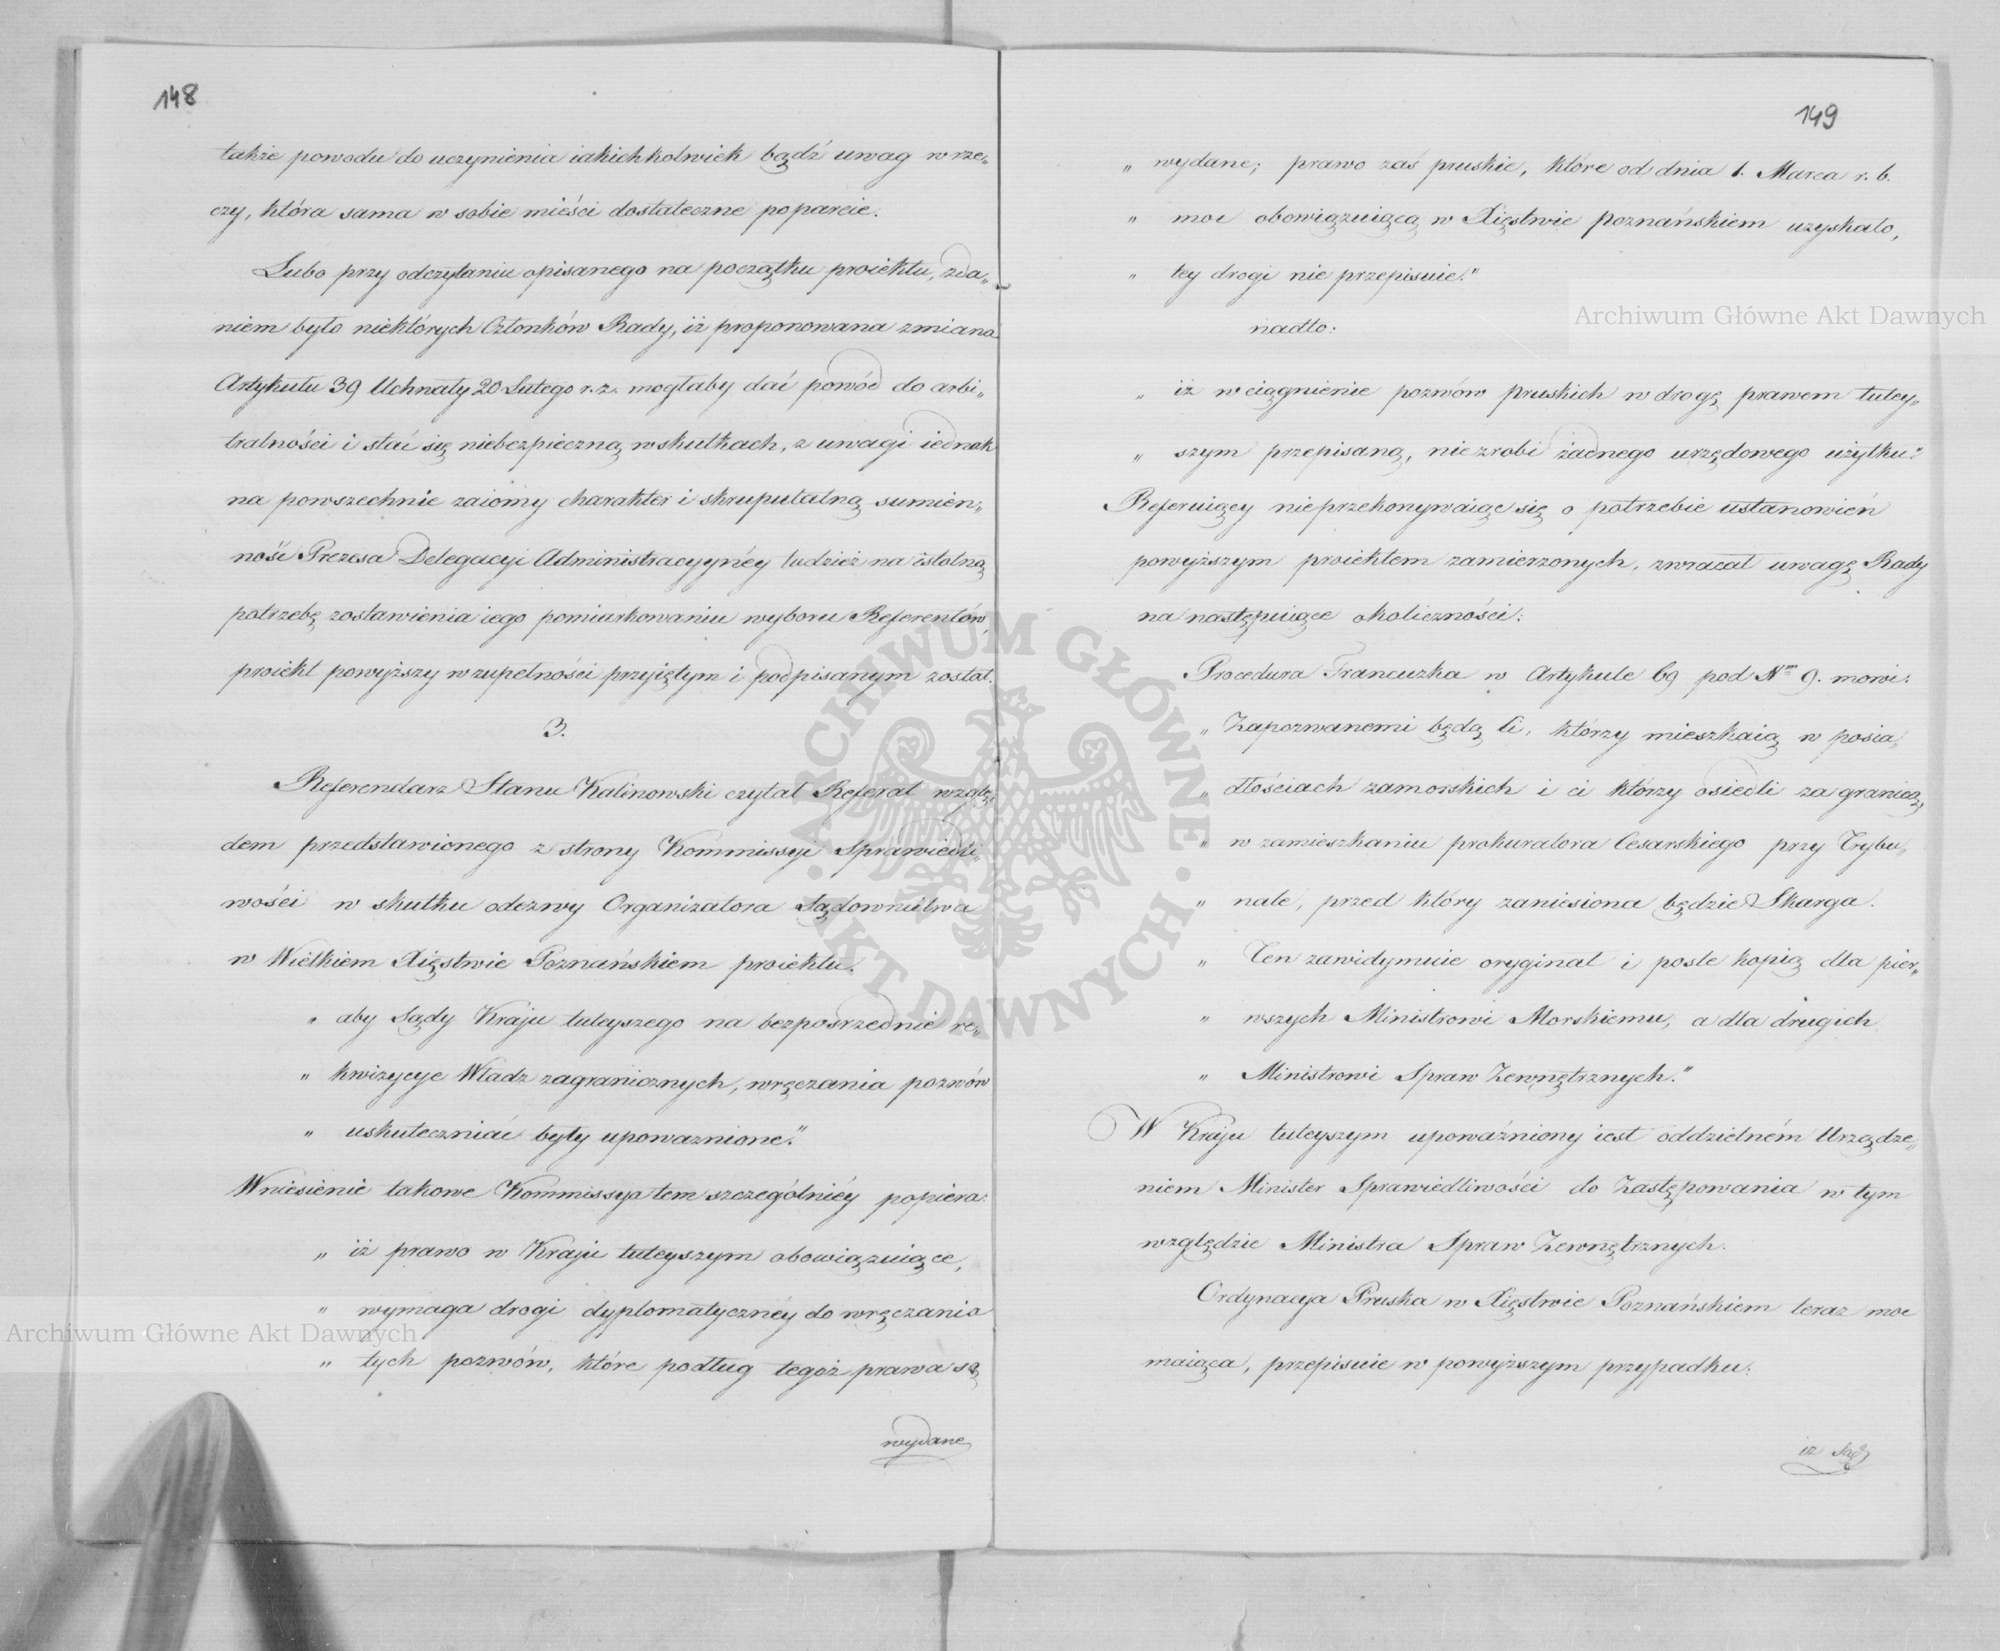 148
także powodu do uczynienia iakichkolwiek bądź uwag w rze„
czy, która sama w sobie mieści dostateczne poparcie.
Lubo przy odczytaniu opisanego na początku proiektu, zda„
niem było niektórych Członków Rady, iż proponowana zmiana
Artykułu 39 Uchwały 20 Lutego r. z. mogłaby dać powód do arbi„
tralności i stać się niebezpieczną w skutkach, z uwagi iednak
na powszechnie zaiomy charakter i skrupulatną sumien„
ność Prezesa Delegacyi Administracyynéy tudzież na istotną
potrzebę zostawienia iego pomiarkowaniu wyboru Referentów,
proiekt powyższy w zupełności przyiętym i podpisanym został.
3.
Referendarz Stanu Kalinowski czytał Referat wzglę„
dem przedstawionego z strony Kommissyi Sprawiedli„
wości w skutku odezwy Organizatora Sądownictwa
w Wielkiem Xięstwie Poznańskiem proiektu.
„ aby Sądy Kraju tuteyszego na bezpośrzednie re„
„ kwizycye Władz zagranicznych, wręczania pozwów
„ uskuteczniać były upoważnione."
Wniesienie takowe Kommissya tem szczególniéy popiera:
„ iż prawo w Kraju tuteyszym obowiązuiące,
„ wymaga drogi dyplomatycznéy do wręczania
„ tych pozwów, które podług tegoż prawa są
wydane
149
„ wydane; prawo zaś pruskie, które od dnia 1. Marca r. b.
„ moc obowiązuiącą w Xięstwie poznańskiem uzyskało,
„ tey drogi nie przepisuie."
nadto:
„ iż wciągnienie pozwów pruskich w drogę prawem tutey„
„ szym przepisaną, nie zrobi żadnego urzędowego użytku."
Referuiący nieprzekonywaiąc się o potrzebie ustanowień
powyższym proiektem zamierzonych, zwracał uwagę Rady
na następuiące okoliczności:
Procedura Francuzka w Artykule 69 pod Nrm 9. mowi:
„ Zapozwanemi będą Ci, którzy mieszkaią w posia„
„ dłościach zamorskich i ci którzy osiedli za granicą,
„ w zamieszkaniu prokuratora Cesarskiego przy Trybu„
„ nale, przed który zaniesiona będzie Skarga.
„ Ten zawidymuie oryginał i posle kopią dla pier„
„ wszych Ministrowi Morskiemu, a dla drugich
„ Ministrowi Spraw Zewnętrznych."
W Kraju tuteyszym upoważniony iest oddzielném Urządze„
niem Minister Sprawiedliwości do Zastępowania w tym
względzie Ministra Spraw Zewnętrznych.
Ordynacya Pruska w Xięstwie Poznańskiem teraz moc
maiąca, przepisuie w powyższym przypadku:
iż Sąd
Archiwum Główne Akt Dawnych
Archiwum Główne Akt Dawnych
ARCHIWUM GŁÓWNE · AKT DAWNYCH ·